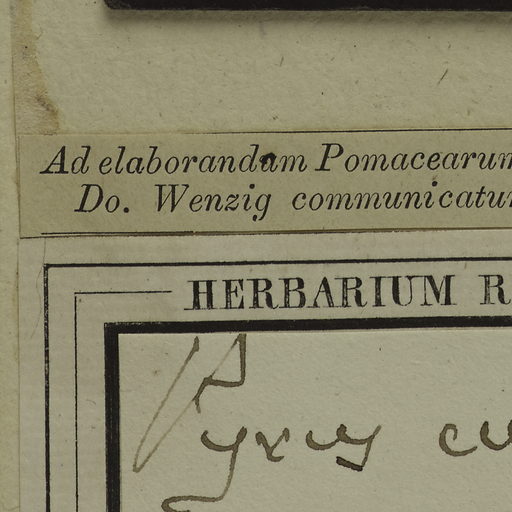 Ad elaborandam Pomacearum
Do. Wenzig communicatu
HERBARIUM R
Pyrus